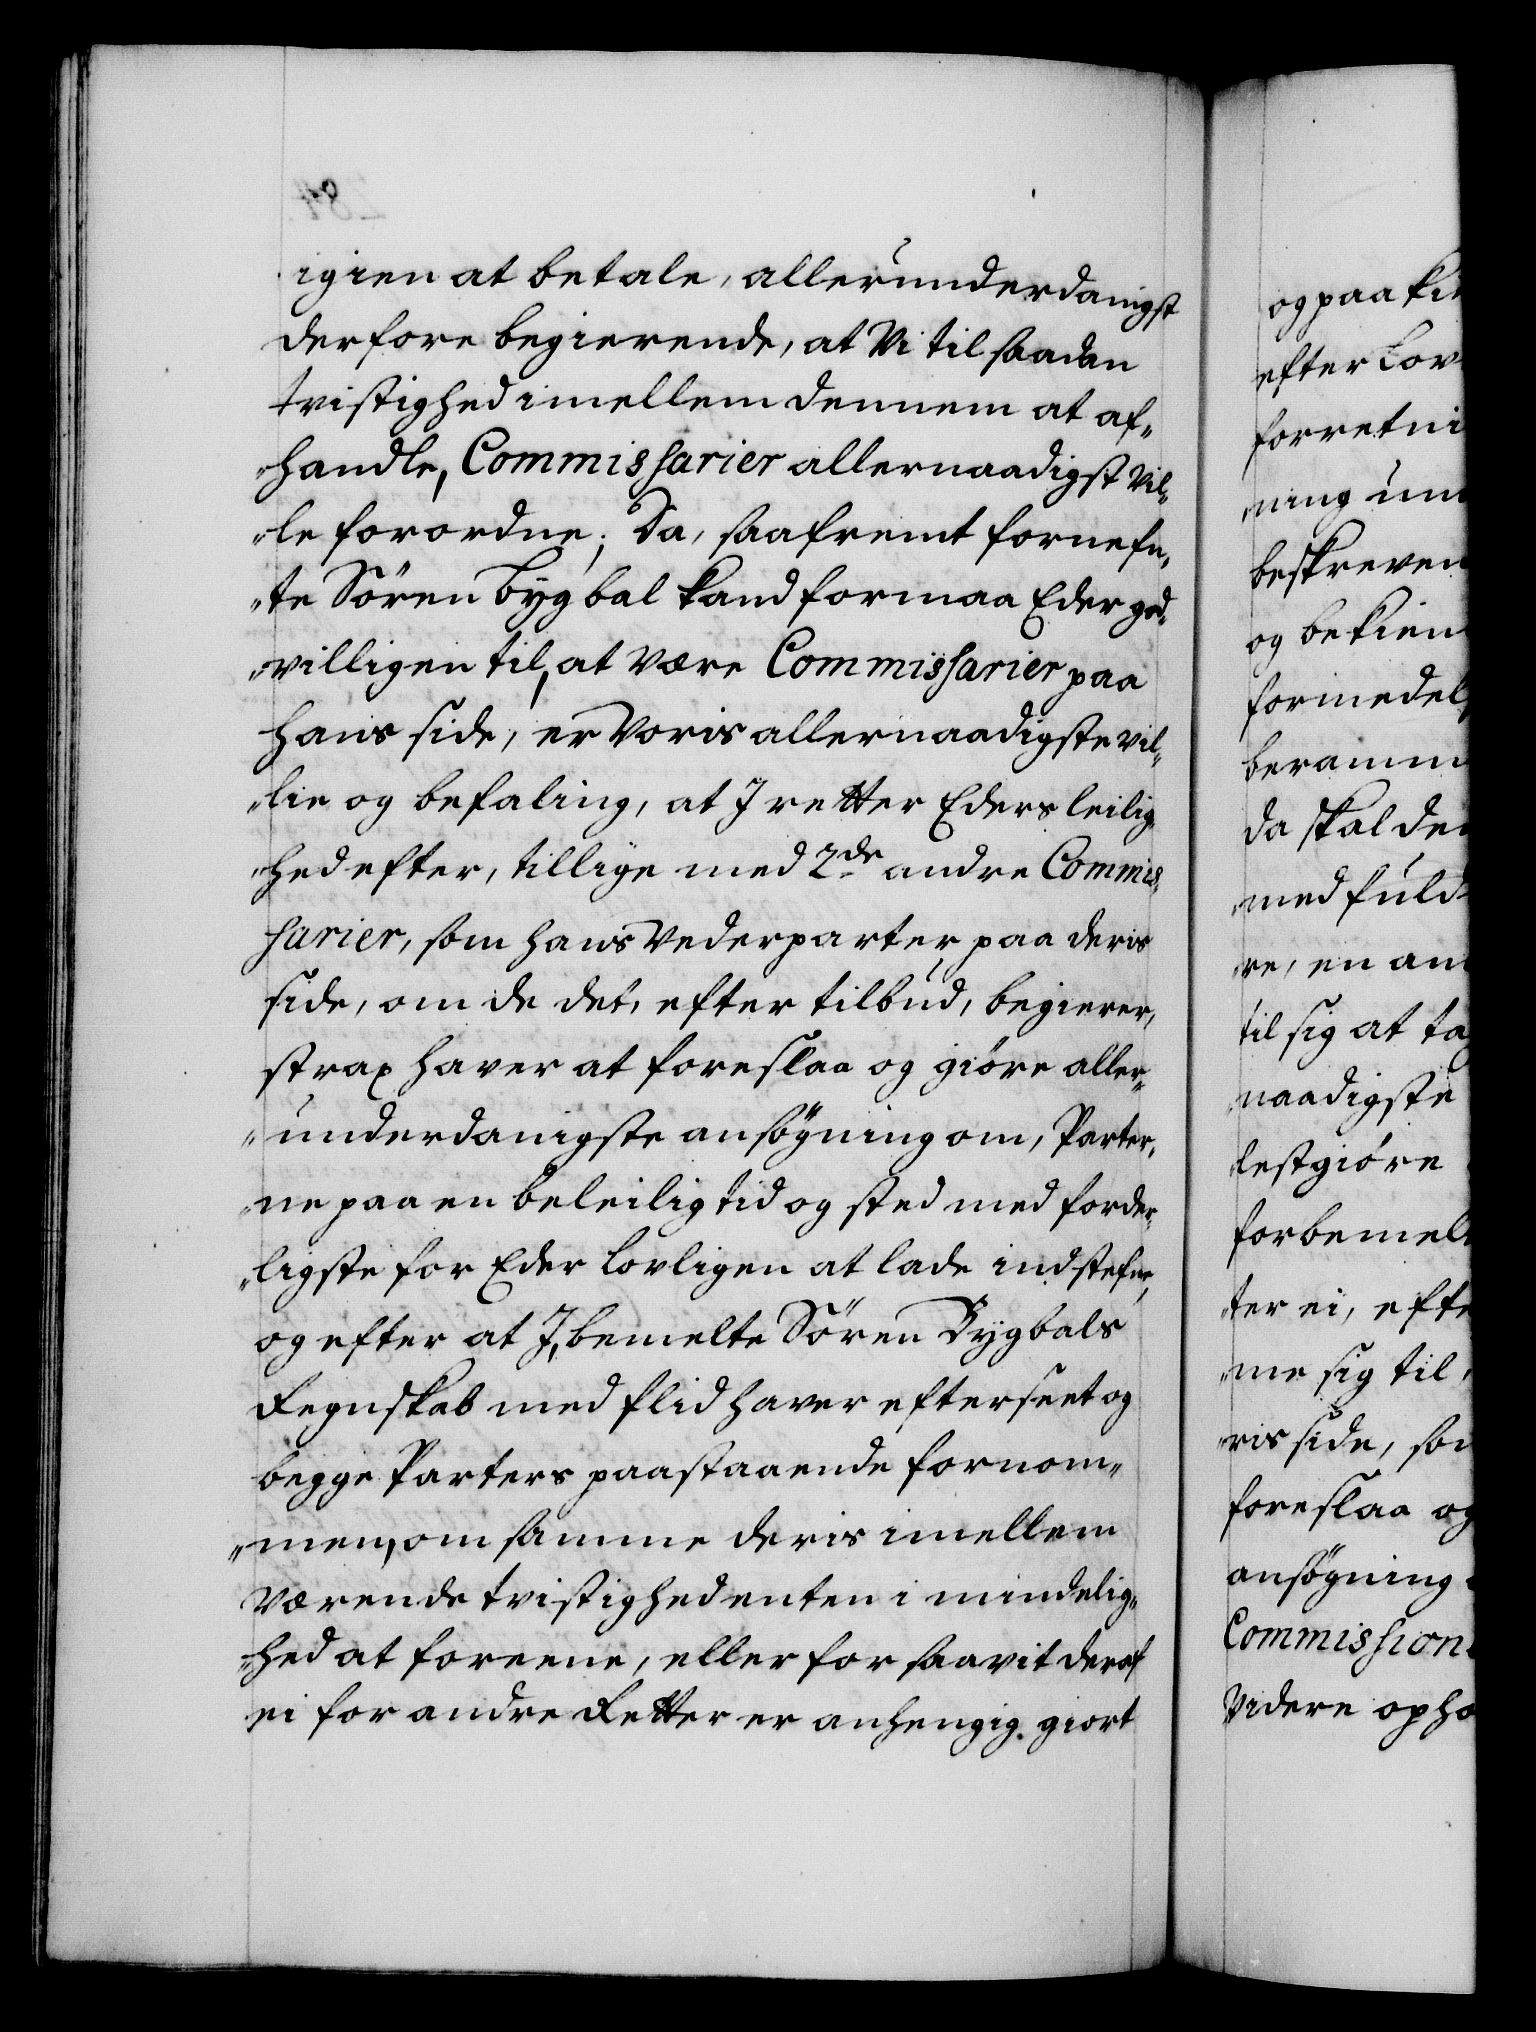 igien at betale, allerunderdanigst
derfore begierende, at Vi til saadan
tvistighed imellem dennem at af„
„handle, Commissarier allernaadigst vil„
„le forordne; Da, saafremt fornefn„
„te Sören Bygbal kand formaa Eder god„
„villigen til, at være Commissarier paa
hans side, er Voris allernaadigste vil„
„lie og befaling, at I retter Eders leilig„
„hed efter, tillige med 2de andre Commis„
sarier, som hans Vederparter, paa deris
side, om de det, efter tilbud, begierer,
strax haver at foreslaa og giöre aller„
„underdanigste ansögning om, Parter„
„ne paa en beleilig tid og sted med forder„
„ligste for Eder lovligen at lade indstefne,
og efter at I, bemelte Sören Bygbals
Regnskab med flid haver efterseet og
begge Parters paastaaende fornom„
„men, om samme deris imellem
værende tvistighed enten i mindelig„
„hed at foreene, eller for saavit deraf
ei for andre Retter er anhengig giort
og paa
efter Lov
forretni
„ning un
beskreven
og bekien
formedel
beramm
da skal de
med fuld
„re, en an
til sig at ta
naadigste
lestgiöre
forbemel
„ter ei, efte
„me sig til,
„ris side, som
foreslaa og
ansögning
Commission
videre opho